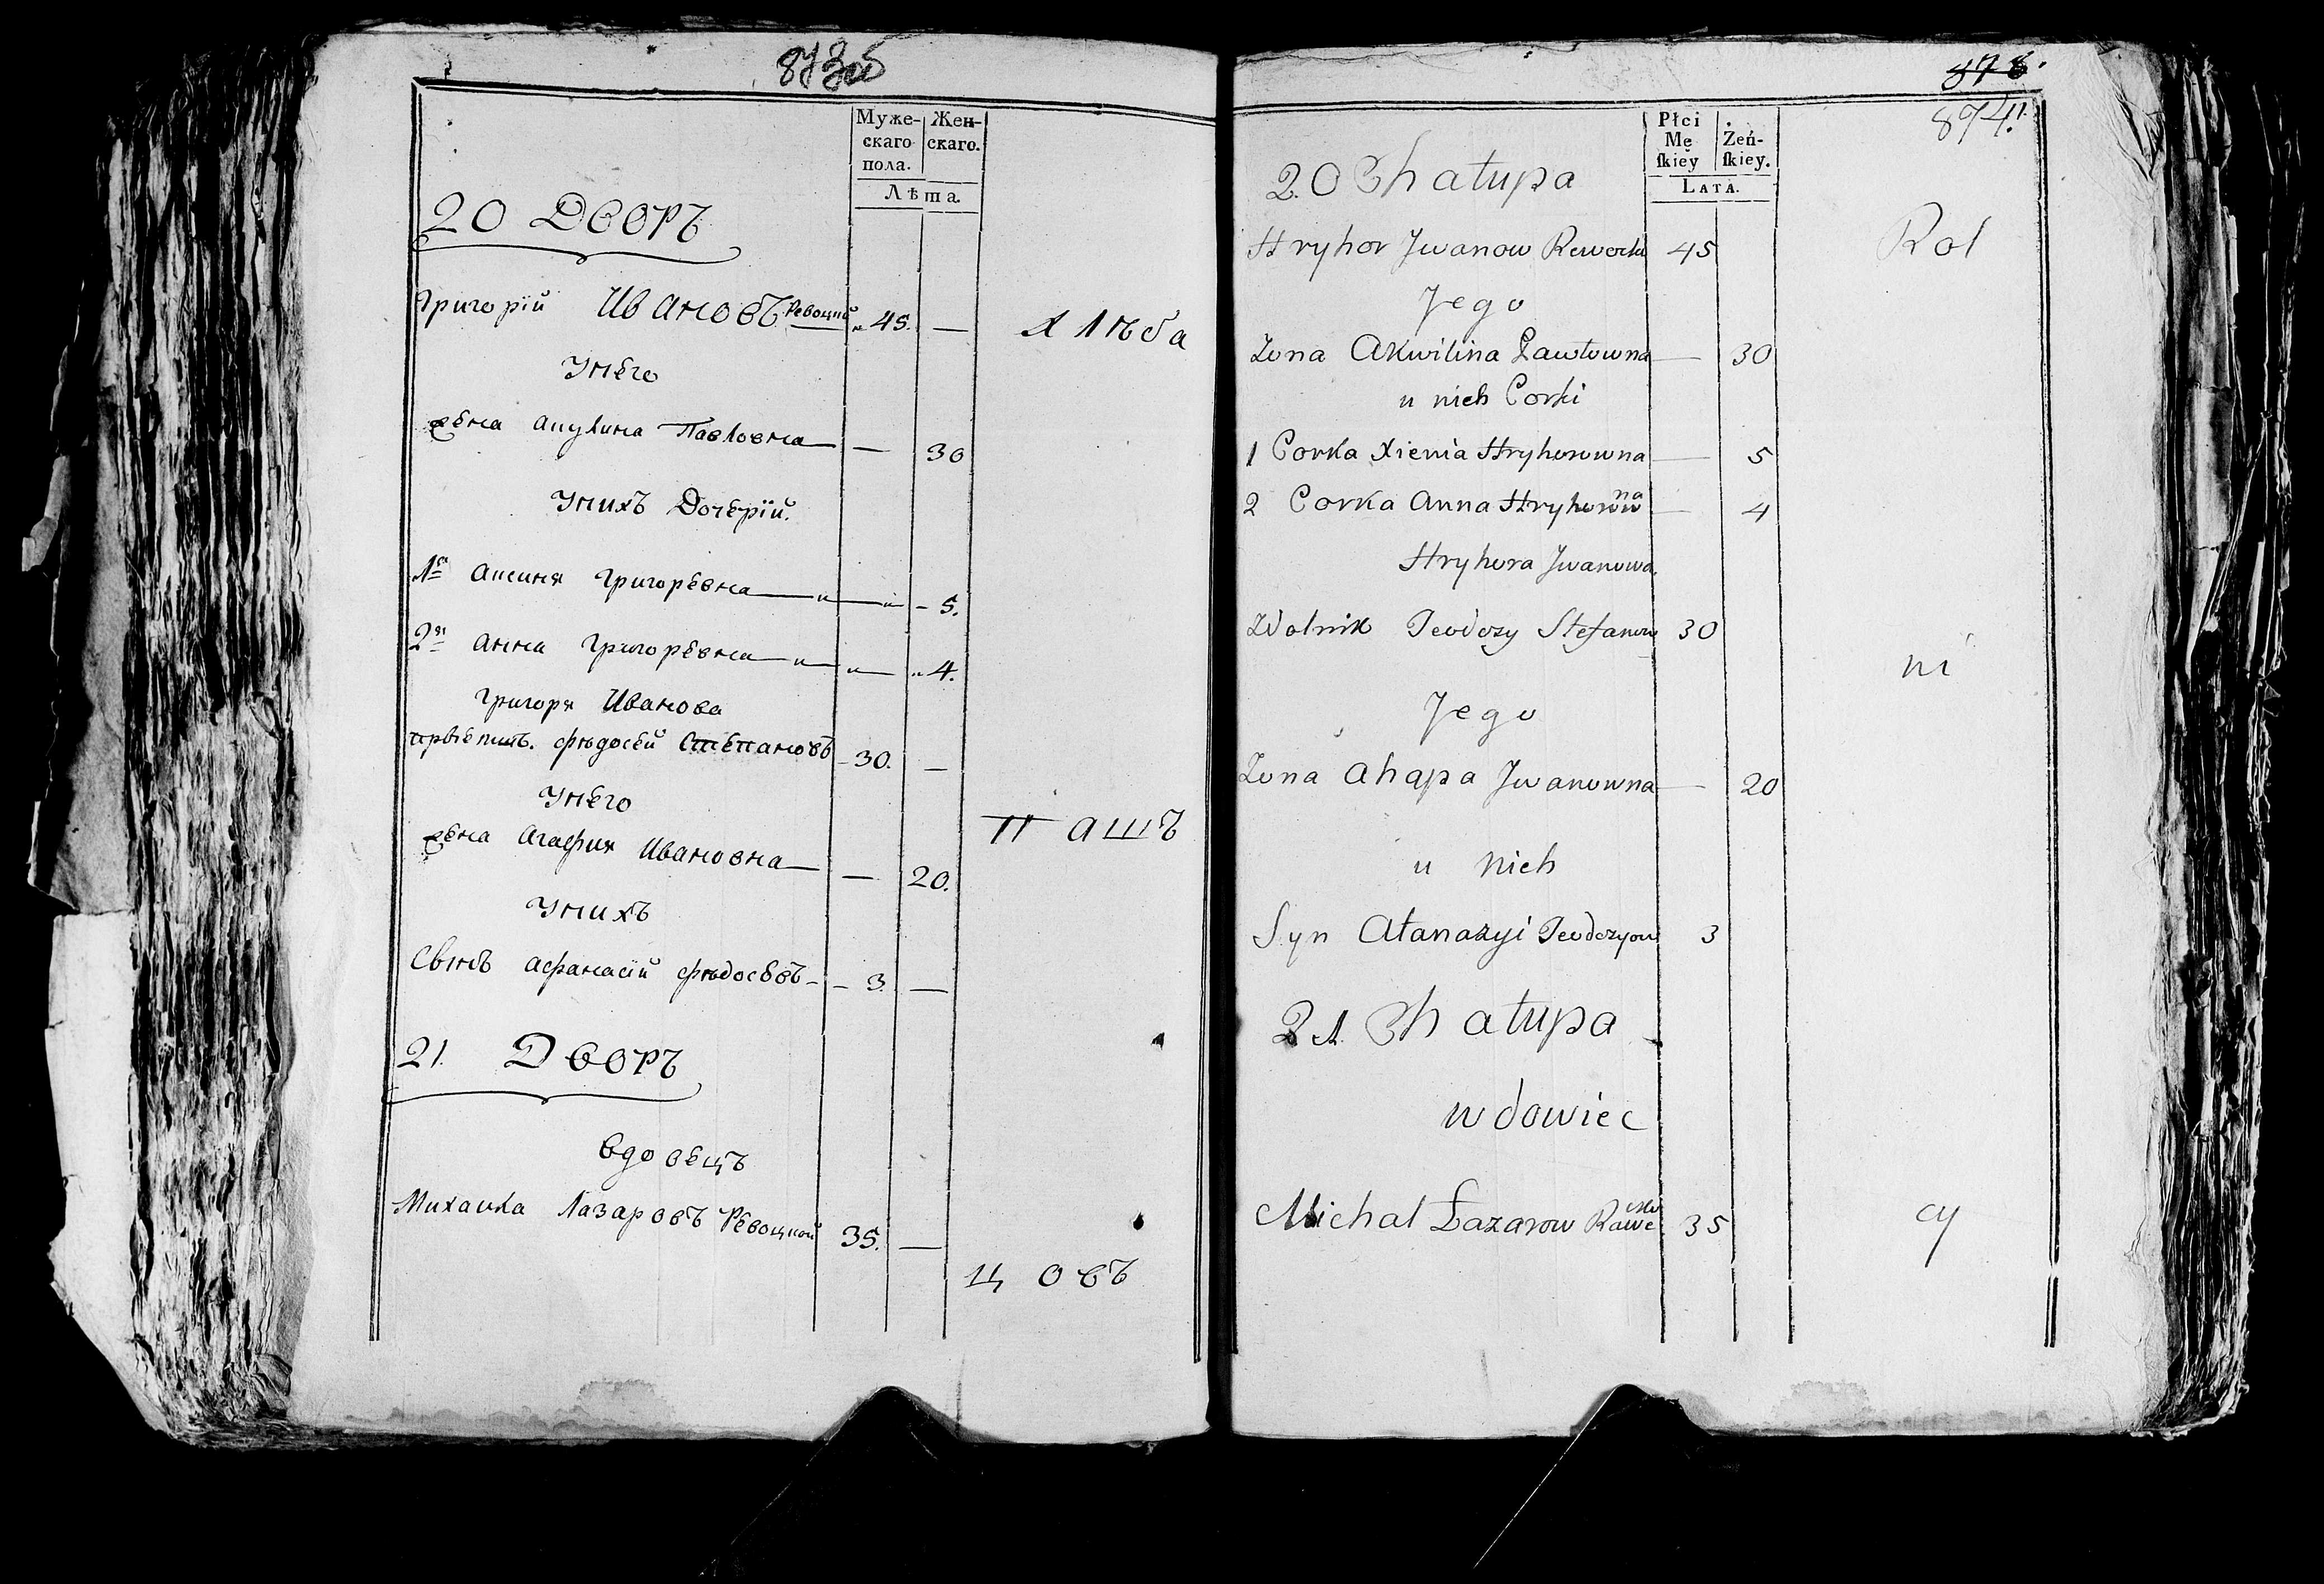 873об
Муже-
скаго
пола.
Жен-
скаго.
Лѣта.
20 Дворъ
Григорїй Ивановъ Ревоцкий 45. —
хлѣба
Унего
жена Акулина Павловна — 30
Унихъ Дочерїй.
1я Аксиня Григоревна — 5.
2я Анна Григоревна — 4.
Григоря Иванова
Фѣдосей Степановъ 30. —
Унего
жена Агафия Ивановна — 20.
пашъ
Унихъ
Сынъ Афанасїй Фѣдосѣвъ 3. —
21. Дворъ
вдовецъ
Михайла Лазаровъ Ревоцкой 35. —
цовъ
878.
874.
Płci
Mę
ſkiey
Żeń-
ſkiey.
Lata.
20 Chałupa
Hryhor Jwanow Rewocki 45
Rol
Jego
Zona Akwilina Pawłowna — 30
u nich Corki
1 Corka Xienia Hryhorowna — 5
2 Corka Anna Hryhorowna — 4
Hryhora Jwanowa
Zdolnik Teodozy Stefanow 30
ni
Jego
Zona Ahapa Jwanowna — 20
u nich
Syn Atanazyi Teodozyow 3
21 Chałupa
wdowiec
Michał Łazarow Rawecki 35
cy